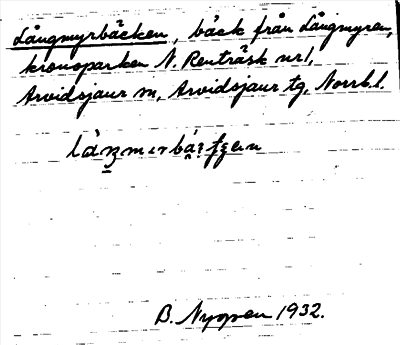 Långmyrbäcken, bäck från Långmyren,
kronoparken N. Renträsk nr 1,
Arvidsjaur sn, Arvidsjaur tg, Norrb. l.
B. Nyman 1932.